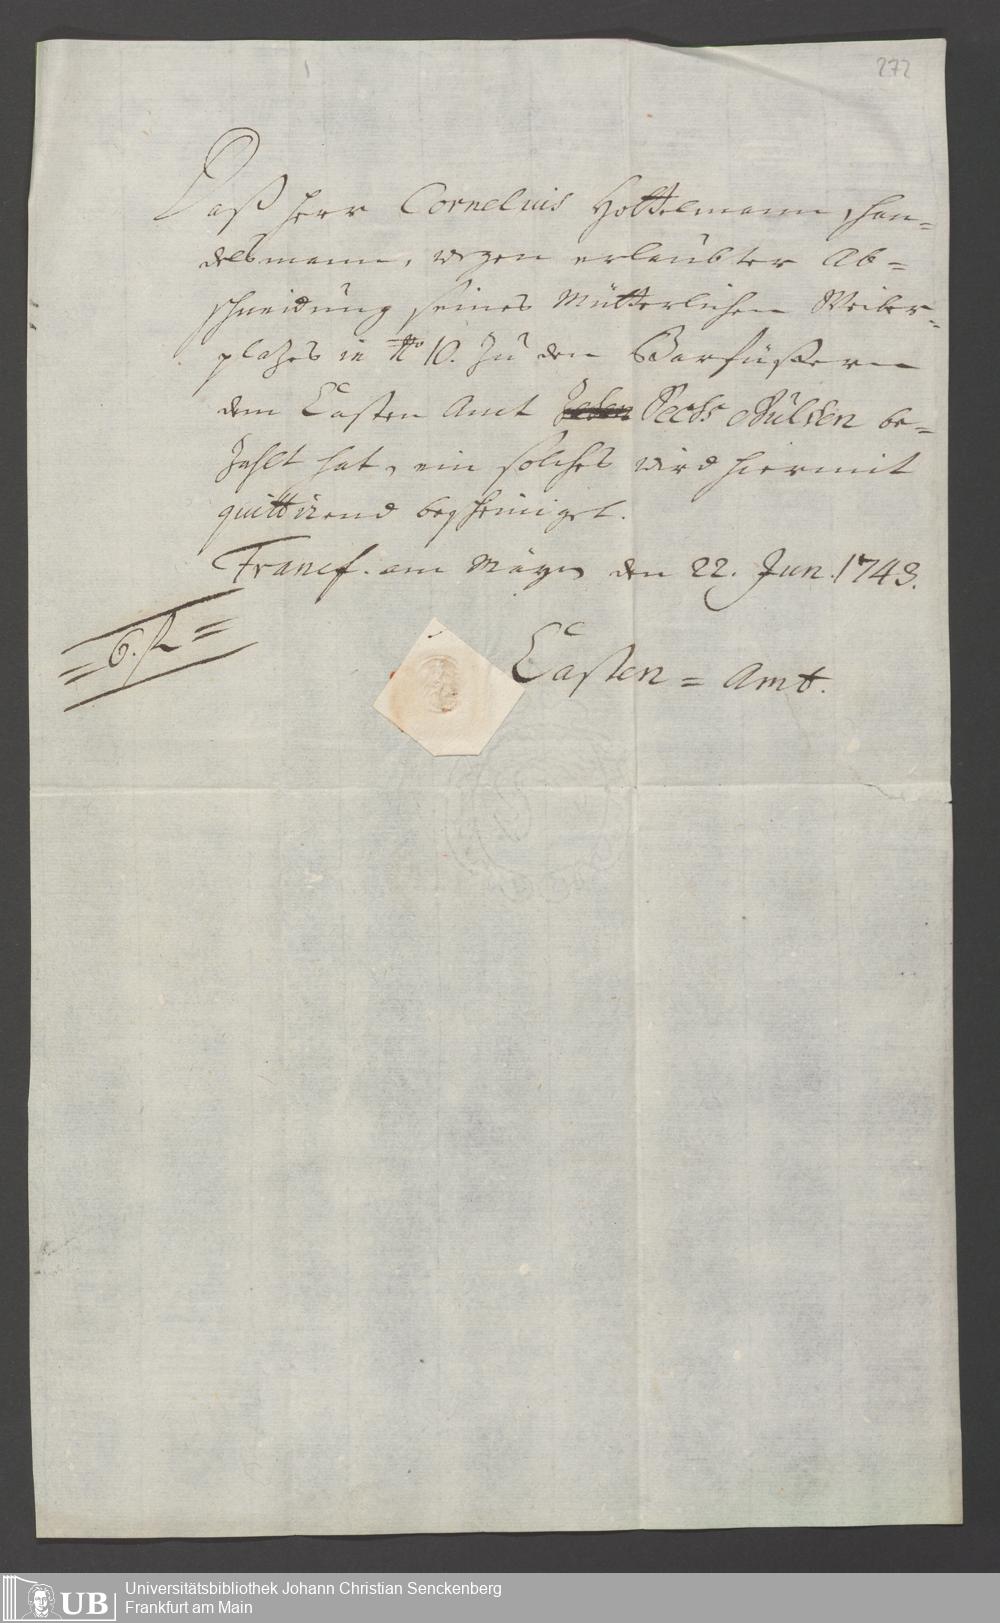 272
Daß Herr Cornelius Hottelmann, Han=
delsmann, wegen erlaubter Ab=
schneidung seines Mütterlichen Weiber=
platzes in No 10. zu den Barfüßern
dem Casten Amt Sechs Gulden be=
zahlt hat, ein solches wird hiermit
quittirend bescheiniget.
Francf. am Mayn den 22. Jun. 1743.
= 6. fl =
Casten = Amt.
UB
Universitätsbibliothek Johann Christian Senckenberg
Frankfurt am Main